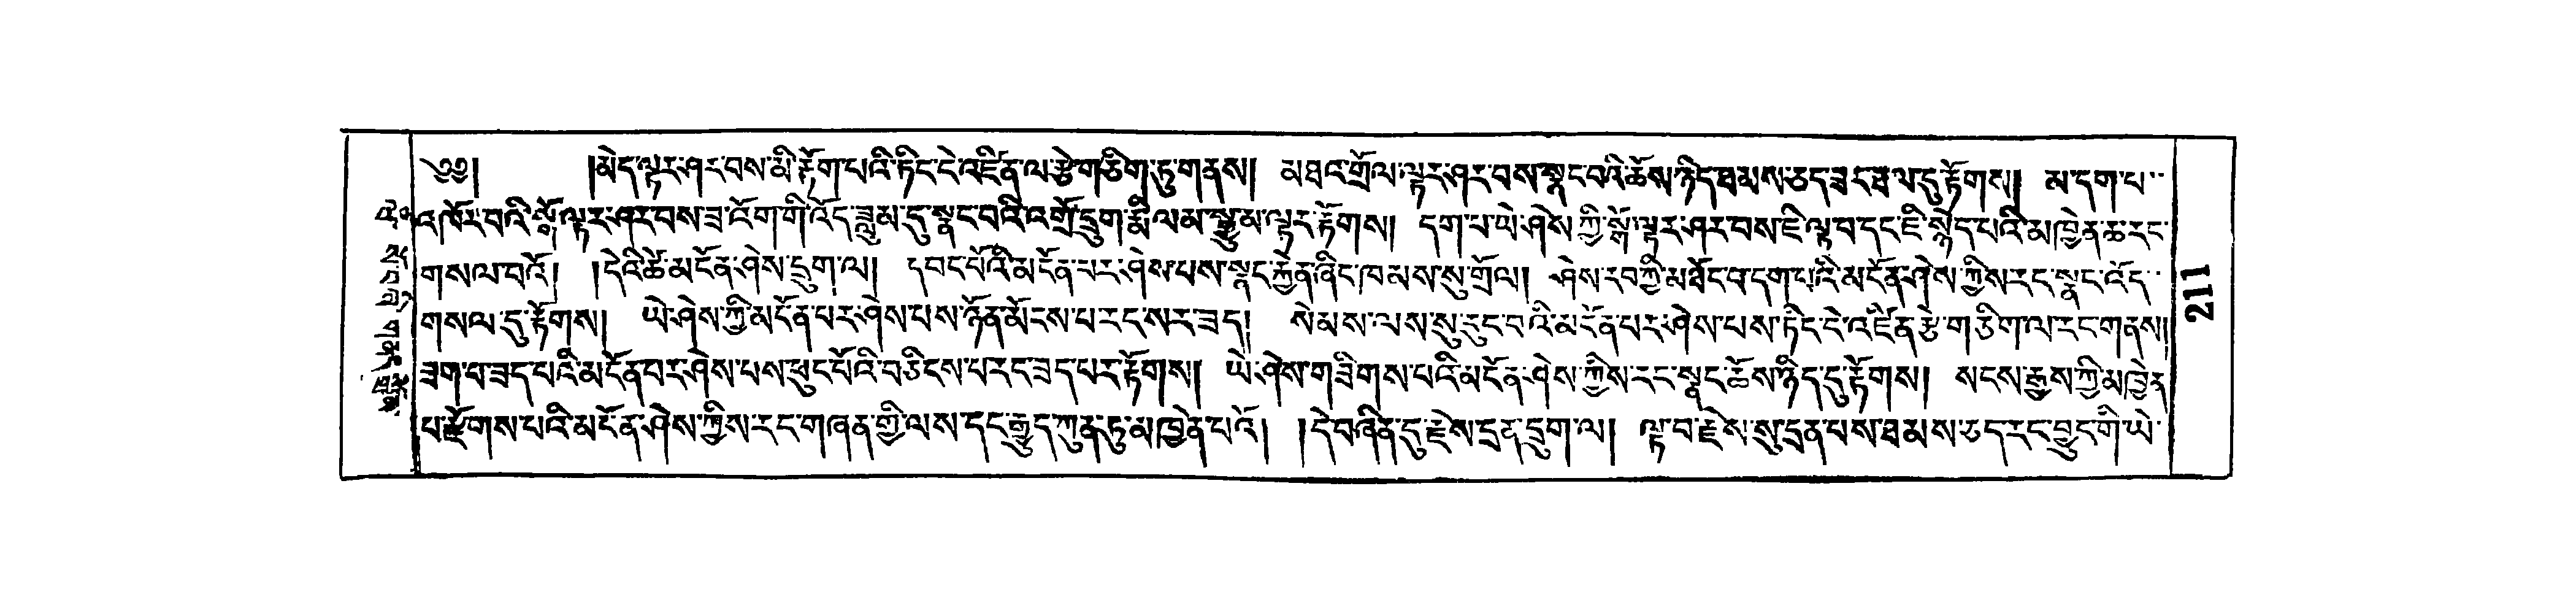 ༄༅། །མེད་ལྟར་ཤར་བས་མི་རྟོག་པའི་ཏིང་ངེ་འཛིན་ལ་རྩེ་གཅིག་ཏུ་གནས། མཐའ་གྲོལ་ལྟར་ཤར་བས་སྣང་བའི་ཆོས་ཉིད་ཐམས་ཅད་ཟང་ཐལ་དུ་རྟོགས། མ་དག་པ་
འཁོར་བའི་སྒོ་ལྟར་ཤར་བས་ཟ་འོག་གི་འོད་ཟླུམ་དུ་སྣང་བའི་འགྲོ་དྲུག་རྨི་ལམ་སྒྱུ་མ་ལྟར་རྟོགས། དག་པ་ཡེ་ཤེས་ཀྱི་སྒོ་ལྟར་ཤར་བས་ཇི་ལྟ་བ་དང་ཇི་སྙེད་པའི་མཁྱེན་ཆ་རང་
གསལ་བའོ། །དེའི་ཚེ་མངོན་ཤེས་དྲུག་ལ། དབང་པོའི་མངོན་པར་ཤེས་པས་སྣང་རྐྱེན་ཞིང་ཁམས་སུ་གྲོལ། ཤེས་རབ་ཀྱི་མཐོང་བ་དག་པའི་མངོན་ཤེས་ཀྱིས་རང་སྣང་འོད་
གསལ་དུ་རྟོགས། ཡེ་ཤེས་ཀྱི་མངོན་པར་ཤེས་པས་ཉོན་མོངས་པ་རང་སར་ཟད། སེམས་ལས་སུ་རུང་བའི་མངོན་པར་ཤེས་པས་ཏིང་ངེ་འཛིན་རྩེ་གཅིག་ལ་རང་གནས།
ཟག་པ་ཟད་པའི་མངོན་པར་ཤེས་པས་ཕུང་པོའི་བཅིངས་པ་རང་ཟད་པར་རྟོགས། ཡེ་ཤེས་གཟིགས་པའི་མངོན་ཤེས་ཀྱིས་རང་སྣང་ཆོས་ཉིད་དུ་རྟོགས། སངས་རྒྱས་ཀྱི་མཁྱེན་
པ་རྫོགས་པའི་མངོན་ཤེས་ཀྱིས་རང་གཞན་གྱི་ལས་དང་རྒྱུད་ཀུན་ཏུ་མཁྱེན་པའོ། །དེ་བཞིན་དུ་རྗེས་དྲན་དྲུག་ལ། ལྟ་བ་རྗེས་སུ་དྲན་པས་ཐམས་ཅད་རང་བྱུང་གི་ཡེ་
112